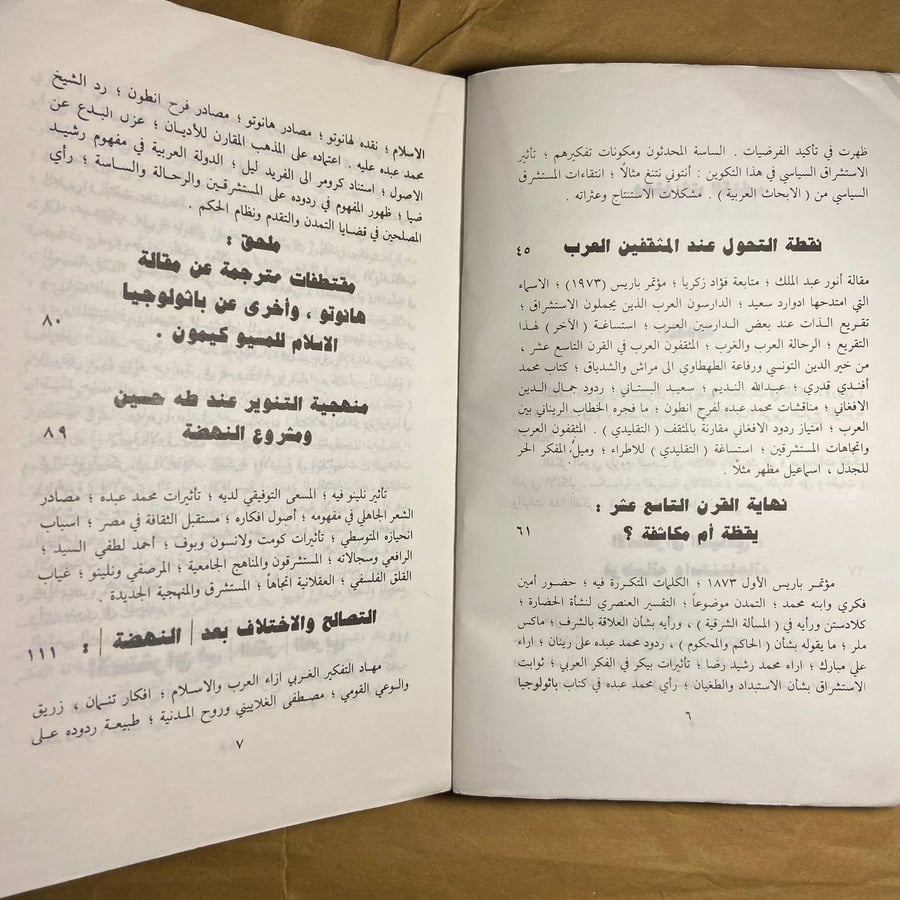 ظهرت في تأكيد الفرضيات . الساسة المحدثون ومكونات تفكيرهم ؛ تأثير
الاستشراق السياسي في هذا التكوين : أنتوني نتنغ مثالًا ؛ انتقاءات المستشرق
السياسي من ( الابحاث العربية ) . مشكلات الاستنتاج وعثراته .
نقطة التحول عند المثقفين العرب ٤٥
مقالة أنور عبد الملك ؛ متابعة فؤاد زكريا ؛ مؤتمر باريس (١٩٧٣) ؛ الاسماء
التي امتدحها ادوارد سعيد ؛ الدارسون العرب الذين يجملون الاستشراق ؛
تقريع الذات عند بعض الدارسين العرب ؛ استساغة ( الآخر ) لهذا
التقريع ؛ الرحالة العرب والغرب ؛ المثقفون العرب في القرن التاسع عشر ،
من خير الدين التونسي ورفاعة الطهطاوي الى مراش والشدياق ؛ كتاب محمد
أفندي قدري ؛ عبدالله النديم ؛ سعيد البستاني ؛ ردود جمال الدين
الافغاني ؛ مناقشات محمد عبده لفرح انطون ؛ ما فجره الخطاب الريناني بين
العرب ؛ امتياز ردود الافغاني مقارنة بالمثقف ( التقليدي ) . المثقفون العرب
واتجاهات المستشرقين ؛ استساغة ( التقليدي ) للاطراء ؛ وميل المفكر الحر
للجدل ، اسماعيل مظهر مثلًا .
نهاية القرن التاسع عشر :
يقظة أم مكاشفة ؟ ٦١
مؤتمر باريس الأول ١٨٧٣ ؛ الكلمات المتكررة فيه ؛ حضور أمين
فكري وابنه محمد ؛ التمدن موضوعاً ؛ التفسير العنصري لنشأة الحضارة ؛
كلادستن ورأيه في ( المسألة الشرقية ) ، ورأيه بشأن العلاقة بالشرف ؛ ماكس
ملر ؛ ما يقوله بشأن (الحاكم والمحكوم) ، ردود محمد عبده على رينان ؛ اراء
علي مبارك ؛ اراء محمد رشيد رضا ؛ تأثيرات بيكر في الفكر العربي ؛ ثوابت
الاستشراق بشأن الاستبداد والطغيان ؛ رأي محمد عبده في كتاب باثولوجيا
٦
الاسلام ؛ نقده لهانوتو ؛ مصادر هانوتو ؛ مصادر فرح انطون ؛ رد الشيخ
محمد عبده عليه . اعتماده على المذهب المقارن للأديان ؛ عزل البدع عن
الاصول ؛ استناد كرومر الى الفريد ليل ؛ الدولة العربية في مفهوم رشيد
ضيا ؛ ظهور المفهوم في ردوده على المستشرقين والرحالة والساسة ؛ رأي
المصلحين في قضايا التمدن والتقدم ونظام الحكم .
ملحق :
مقتطفات مترجمة عن مقالة
هانوتو ، وأخرى عن باثولوجيا
الاسلام للمسيو كيمون . ٨٠
منهجية التنوير عند طه حسين
ومشروع النهضة ٨٩
تأثير نلينو فيه ؛ المسعى التوفيقي لديه ؛ تأثيرات محمد عبده ؛ مصادر
الشعر الجاهلي في مفهومه ؛ أصول افكاره ؛ مستقبل الثقافة في مصر ؛ اسباب
انحيازه المتوسطي ؛ تأثيرات كومت ولانسون وبوف ؛ أحمد لطفي السيد ؛
الرافعي وسجالاته ؛ المستشرقون والمناهج الجامعية ؛ المرصفي ونلينو ، غياب
القلق الفلسفي ؛ العقلانية اتجاهاً ؛ المستشرق والمنهجية الجديدة .
التصالح والاختلاف بعد | النهضة | : ١١١
مهاد التفكير الغربي ازاء العرب والاسلام ؛ افكار تنمان ، زريق
والوعي القومي ؛ مصطفى الغلاييني وروح المدنية ؛ طبيعة ردوده على
٧